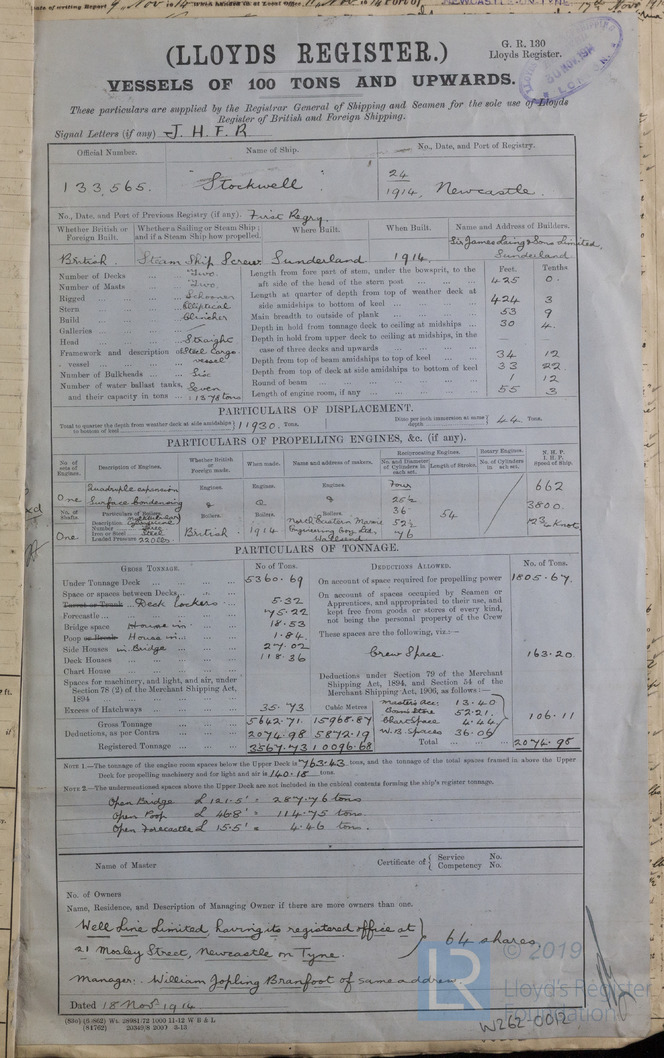 Date of writing Report 9 Nov 14 When handed in at Local Office Port of NEWCASTLE-ON-TYNE 17th Nov
(LLOYDS REGISTER.)
G. R. 130
Lloyds Register.
VESSELS OF 100 TONS AND UPWARDS.
These particulars are supplied by the Registrar General of Shipping and Seamen for the sole use of Lloyds
Register of British and Foreign Shipping.
Signal Letters (if any) J. H. F. R
Official Number. Name of Ship. No., Date, and Port of Registry.
133,565. "Stockwell" 24
1914, Newcastle.
No., Date, and Port of Previous Registry (if any). First Regry.
Whether British or Foreign Built. Whether a Sailing or Steam Ship; and if a Steam Ship how propelled. Where Built. When Built. Name and Address of Builders.
British. Steam Ship Screw Sunderland 1914. Sir James Laing & Sons Limited, Sunderland
Feet. Tenths
Number of Decks Two. Length from fore part of stem, under the bowsprit, to the
Number of Masts Two. aft side of the head of the stern post 425 0.
Rigged Schooner Length at quarter of depth from top of weather deck at
Stern Elliptical side amidships to bottom of keel 424 3
Build Clincher Main breadth to outside of plank 53 9
Galleries Depth in hold from tonnage deck to ceiling at midships 30 4.
Head Straight Depth in hold from upper deck to ceiling at midships, in the
Framework and description of vessel Steel Cargo vessel case of three decks and upwards
Depth from top of beam amidships to top of keel 34 12
Number of Bulkheads Six Depth from top of deck at side amidships to bottom of keel 33 22
Number of water ballast tanks, Seven Round of beam 1 12
and their capacity in tons 1378 tons Length of engine room, if any 55 3
PARTICULARS OF DISPLACEMENT.
Total to quarter the depth from weather deck at side amidships to bottom of keel 11930. Tons. Ditto per inch immersion at same depth 44 Tons.
PARTICULARS OF PROPELLING ENGINES, &c. (if any).
No. of sets of Engines. Description of Engines. Whether British or Foreign made. When made. Name and address of makers. Reciprocating Engines. Rotary Engines. N. H. P. I. H. P. Speed of Ship.
No. and Diameter of Cylinders in each set. Length of Stroke. No. of Cylinders in each set.
Quadruple expansion Engines. Engines. Engines. Four 662
One Surface Condensing & & & 25½
No. of Shafts. Particulars of Boilers. Boilers. Boilers. Boilers. 36 54 3800
Description Multitubular Cylindrical
Number Three North Eastern Marine 52½
Iron or Steel Steel British. 1914 Engineering Coy Ltd,
One Loaded Pressure 220 lbs. Wallsend 76 12¾ Knots
PARTICULARS OF TONNAGE.
GROSS TONNAGE. No of Tons. DEDUCTIONS ALLOWED. No. of Tons.
Under Tonnage Deck 5360.69 On account of space required for propelling power 1805.67.
Space or spaces between Decks On account of spaces occupied by Seamen or
Turret or Trunk Deck Lockers 5.32 Apprentices, and appropriated to their use, and
Forecastle 75.22 kept free from goods or stores of every kind,
Bridge space House in 18.53 not being the personal property of the Crew
Poop or Break House in 1.84 These spaces are the following, viz.:—
Side Houses in Bridge 27.02
Deck Houses 118.36 Crew Space 163.20
Chart House
Spaces for machinery, and light, and air, under Deductions under Section 79 of the Merchant
Section 78 (2) of the Merchant Shipping Act, Shipping Act, 1894, and Section 54 of the
1894 Merchant Shipping Act, 1906, as follows:—
Excess of Hatchways 35.73 Cubic Metres Master's acc: 13.40
Gross Tonnage 5642.71 15968.87 Bosn's Store 52.21
Chart Space 4.44 106.11
Deductions, as per Contra 2074.98 5872.19 W.B. Spaces 36.06
Registered Tonnage 3567.73 10096.68 Total 2074.98
NOTE 1.—The tonnage of the engine room spaces below the Upper Deck is 763.43 tons, and the tonnage of the total spaces framed in above the Upper
Deck for propelling machinery and for light and air is 140.18 tons.
NOTE 2.—The undermentioned spaces above the Upper Deck are not included in the cubical contents forming the ship's register tonnage.
Open Bridge L 121.5' = 287.76 tons
Open Poop L 46.8' = 114.75 tons
Open Forecastle L 15.5' = 4.46 tons.
Name of Master Certificate of { Service No.
Competency No.
No. of Owners
Name, Residence, and Description of Managing Owner if there are more owners than one.
Well Line Limited having its registered office at
21 Mosley Street, Newcastle on Tyne. } 64 shares,
Manager. William Jopling Branfoot of same address.
Dated 18 Novr 1914
(830) (5/862) Wt. 28981/72 1000 11-12 W B & L
(84762) 20349/8 2000 3-13
LR
© 2019
Lloyd's Register
Foundation
W262-0012